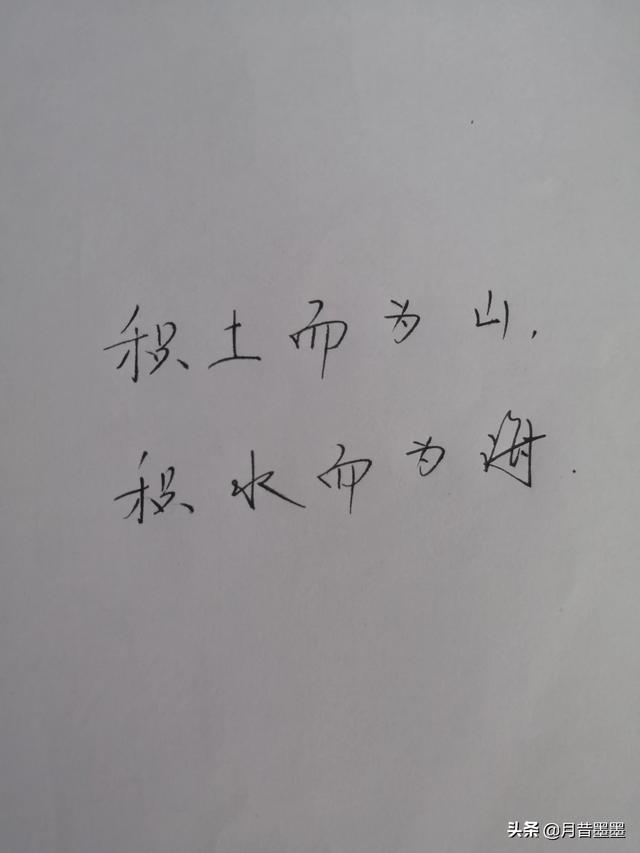 积土而为山,
积水而为海.
头条 @月昔墨墨